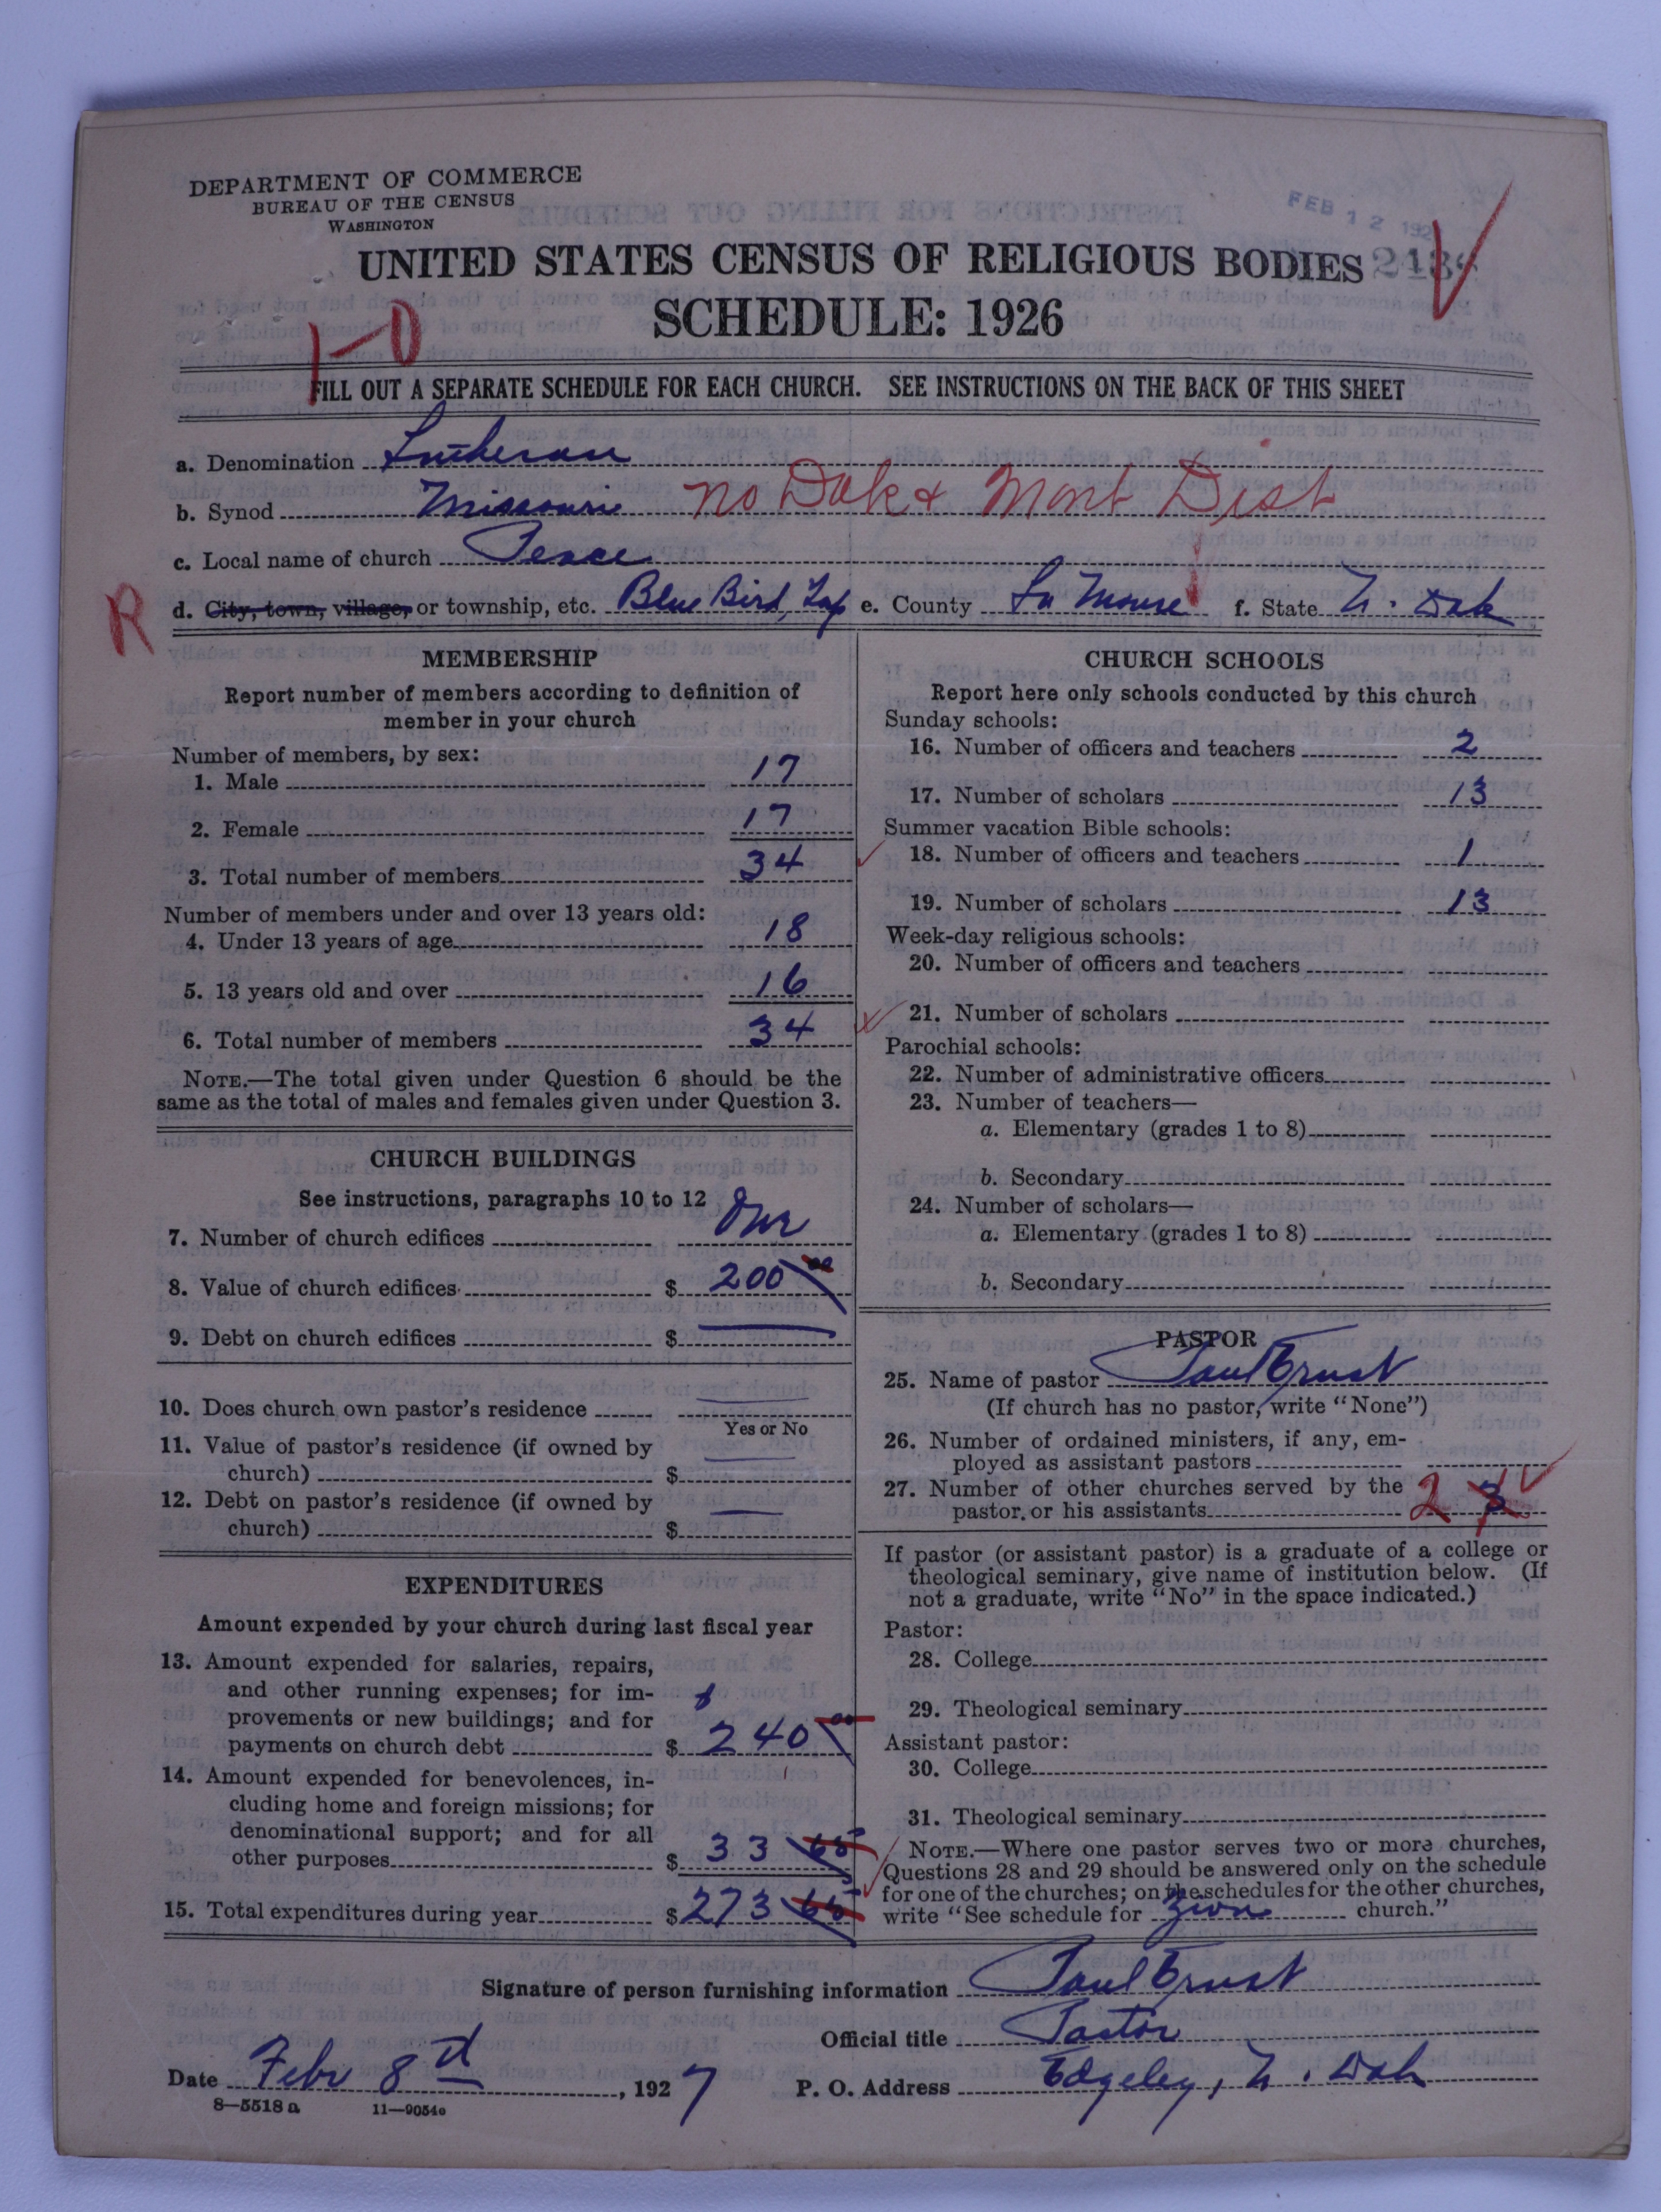 DEPARTMENT OF COMMERCE
BUREAU OF THE CENSUS
WASHINGTON
FEB 12 192
UNITED STATES CENSUS OF RELIGIOUS BODIES
SCHEDULE: 1926
1-0
FILL OUT A SEPARATE SCHEDULE FOR EACH CHURCH. SEE INSTRUCTIONS ON THE BACK OF THIS SHEET
a. Denomination Lutheran
b. Synod Missouri No Dak & Mont Dist
c. Local name of church Peace
R
d. City, town, village, or township, etc. Blue Bird, Tap e. County La Moure f. State N. Dak
MEMBERSHIP
Report number of members according to definition of
member in your church
Number of members, by sex:
1. Male 17
2. Female 17
3. Total number of members 34
Number of members under and over 13 years old:
4. Under 13 years of age 18
5. 13 years old and over 16
6. Total number of members 34
NOTE.—The total given under Question 6 should be the
same as the total of males and females given under Question 3.
CHURCH BUILDINGS
See instructions, paragraphs 10 to 12
7. Number of church edifices One
8. Value of church edifices $ 200 00
9. Debt on church edifices $
10. Does church own pastor's residence
Yes or No
11. Value of pastor's residence (if owned by
church) $
12. Debt on pastor's residence (if owned by
church) $
EXPENDITURES
Amount expended by your church during last fiscal year
13. Amount expended for salaries, repairs,
and other running expenses; for im-
provements or new buildings; and for
payments on church debt $ 240 00
14. Amount expended for benevolences, in-
cluding home and foreign missions; for
denominational support; and for all
other purposes $ 33 65
15. Total expenditures during year $ 273 65
CHURCH SCHOOLS
Report here only schools conducted by this church
Sunday schools:
16. Number of officers and teachers 2
17. Number of scholars 13
Summer vacation Bible schools:
18. Number of officers and teachers 1
19. Number of scholars 13
Week-day religious schools:
20. Number of officers and teachers
21. Number of scholars
Parochial schools:
22. Number of administrative officers
23. Number of teachers—
a. Elementary (grades 1 to 8)
b. Secondary
24. Number of scholars—
a. Elementary (grades 1 to 8)
b. Secondary
PASTOR
25. Name of pastor Paul Ernst
(If church has no pastor, write "None")
26. Number of ordained ministers, if any, em-
ployed as assistant pastors
27. Number of other churches served by the
pastor or his assistants 2 3
If pastor (or assistant pastor) is a graduate of a college or
theological seminary, give name of institution below. (If
not a graduate, write "No" in the space indicated.)
Pastor:
28. College
29. Theological seminary
Assistant pastor:
30. College
31. Theological seminary
NOTE.—Where one pastor serves two or more churches,
Questions 28 and 29 should be answered only on the schedule
for one of the churches; on the schedules for the other churches,
write "See schedule for Zion church."
Signature of person furnishing information Paul Ernst
Official title Pastor
Date Febr 8th, 1927 P. O. Address Edgeley, N. Dak
8—5518 a 11—9054